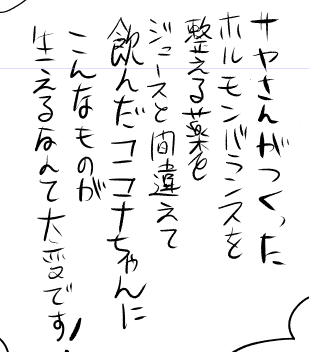 サヤさんがつくった
ホルモンバランスを
整える薬を
ジュースと間違えて
飲んだココナちゃんに
こんなものが
生えるなんて大変です!